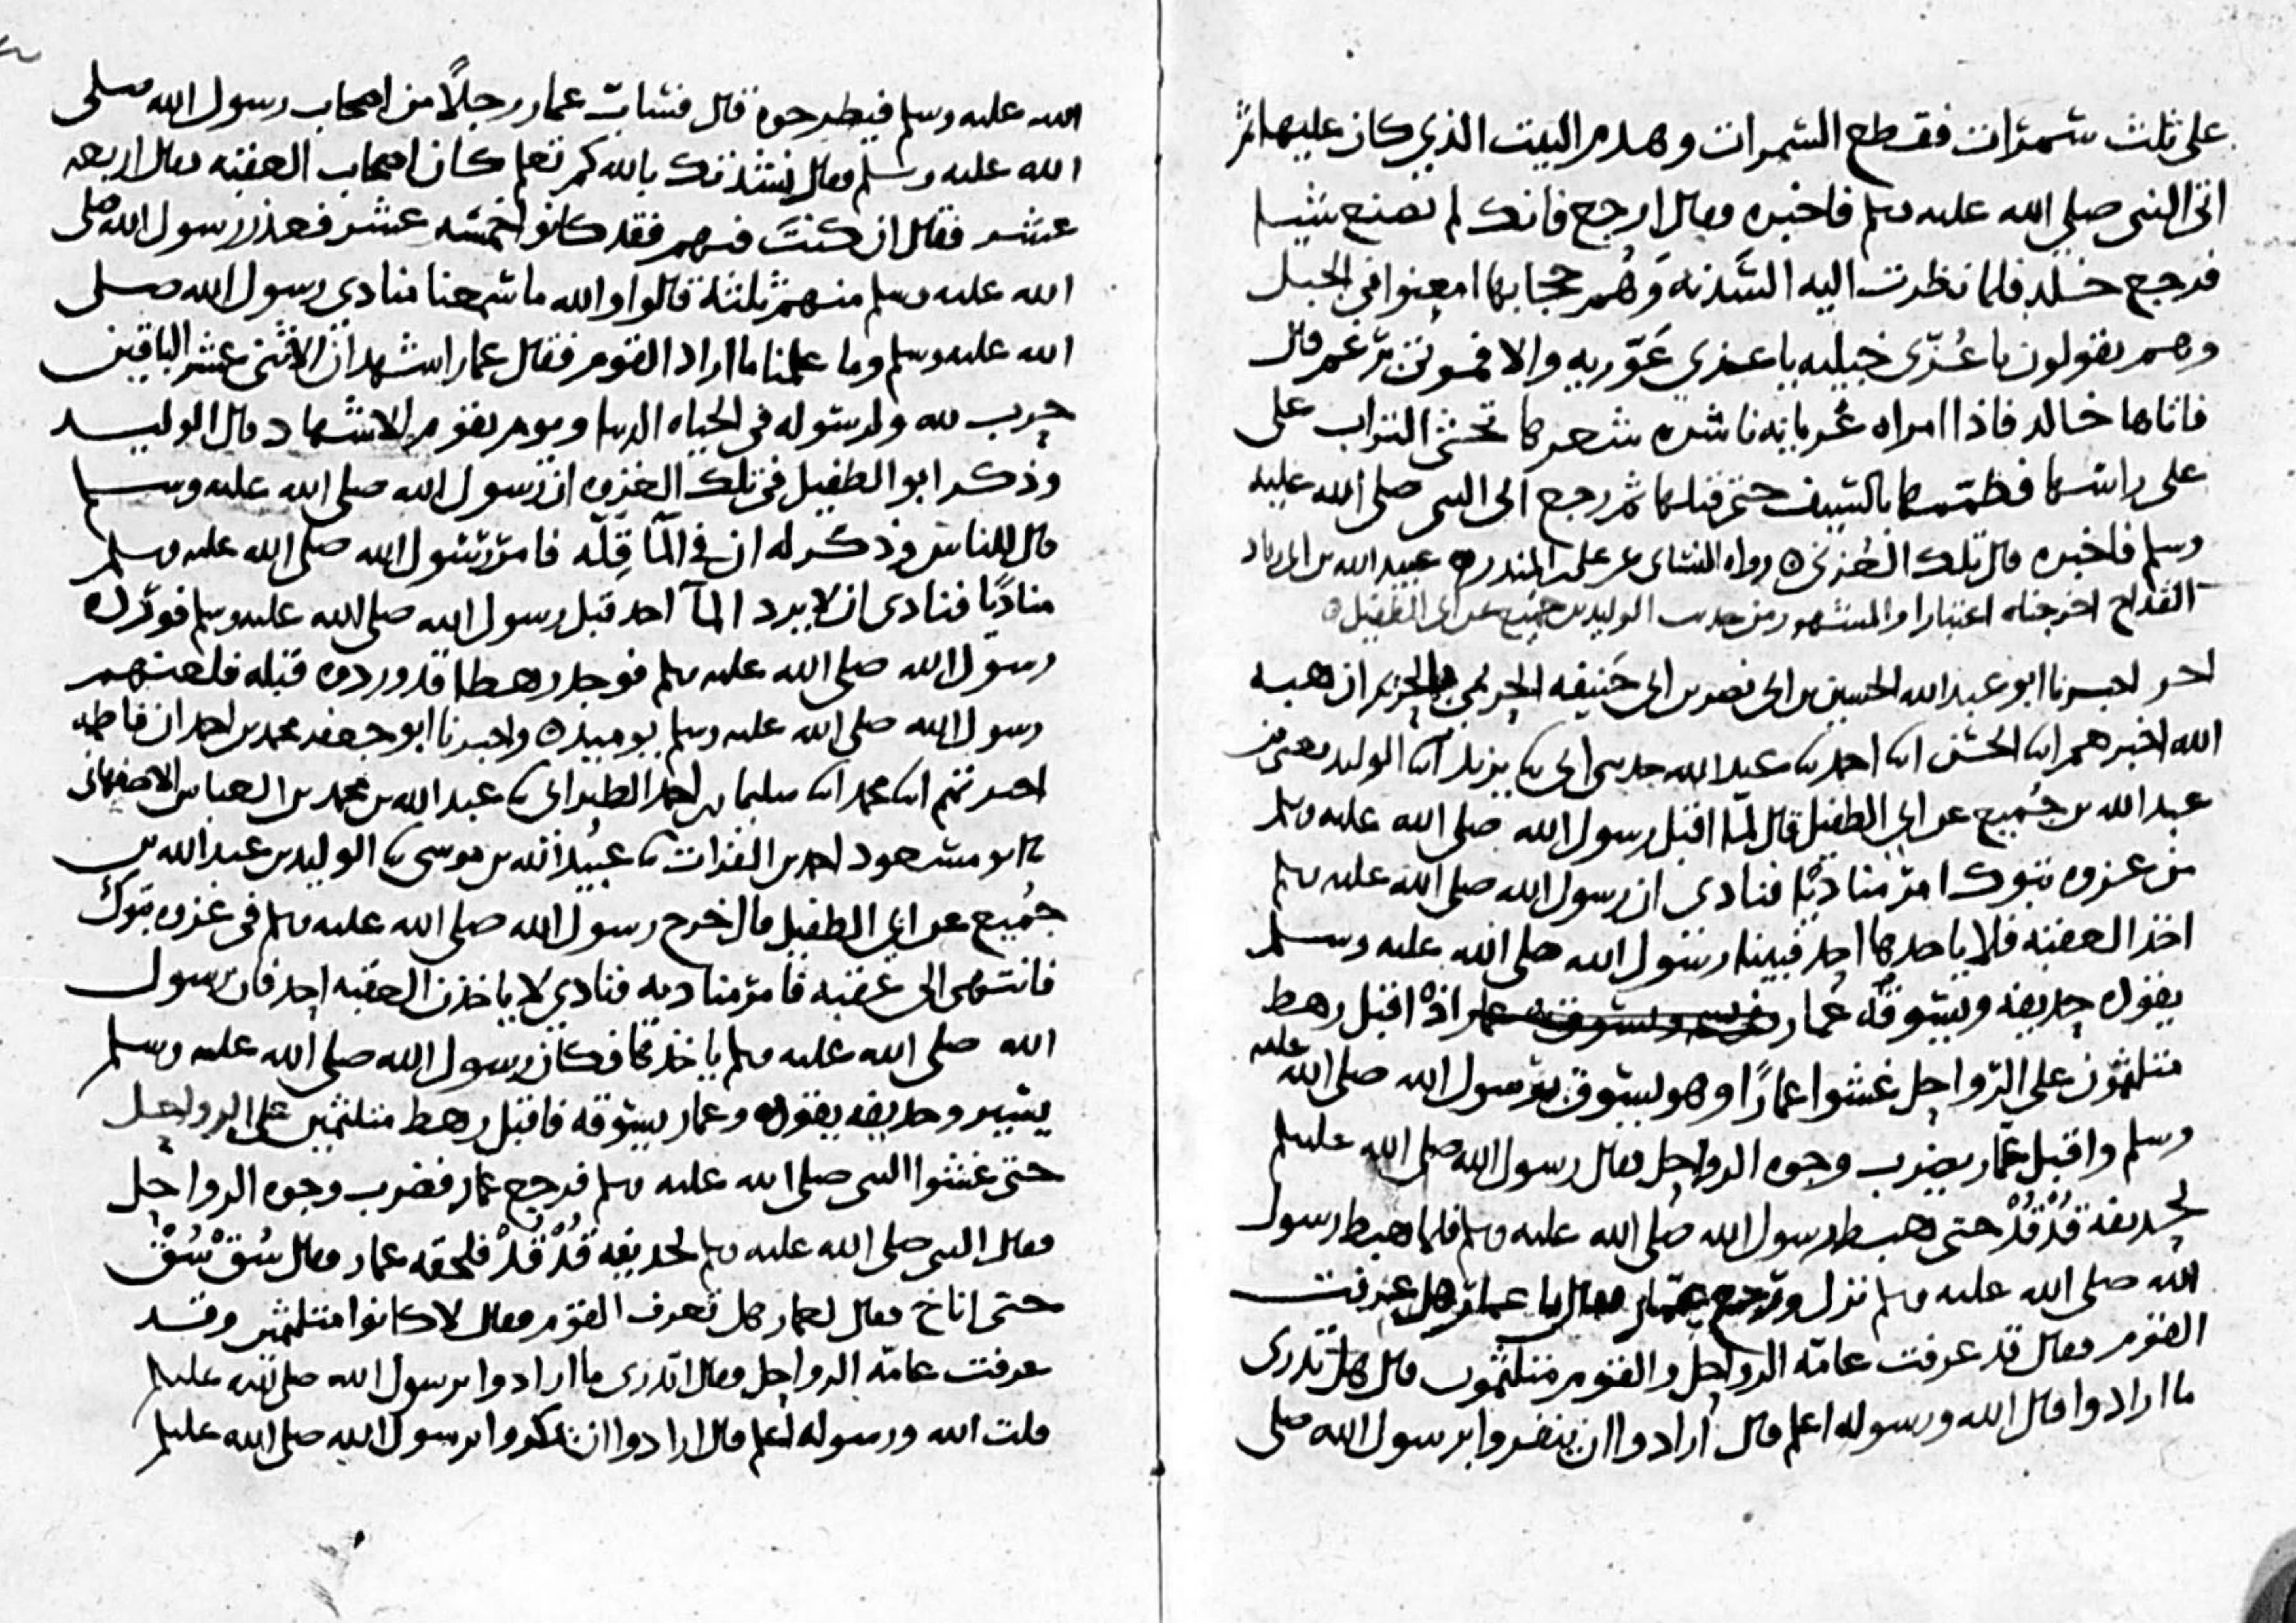 على ثلث سمرات فقطع السمرات وهدم البيت الذي كان عليها ثم
اتى النبي صلى الله عليه وسلم فاخبره وقال ارجع فانك لم تصنع شيا
فرجع خلد فلما نظرت اليه السَّدنه وَهُم حجابها امعنوا في الجبل
وهم يقولون يا عُزّى خبليه يا عزى عَوّريه والا فموتى برغم قال
فاتاها خالد فاذا امراه عُريانه ناشره شعرها تحثى التراب على
على راسها فعمّمها بالسيف حتى قتلها ثم رجع الى النبي صلى الله عليه
وسلم فاخبره قال تلك العُزى ه رواه النسائى عن على بن المنذر ه عبيد الله بن ابى زياد
القداح اخرجناه اعتبارا والمشهور من حديث الوليد بن جميع عن ابى الطفيل ه
اخر اخبرنا ابو عبد الله الحسين بن ابى نصر بن ابى حَنيفه الحريمي بالحريم ان هبه
الله اخبرهم ابنا الحسن ابنا احمد ثنا عبد الله حدثنى ابى ثنا يزيد ابنا الوليد يعنى بن
عبد الله بن جُميع عن ابي الطفيل قال لمّا اقبل رسول الله صلى الله عليه وسلم
من غزوه تبوك امر مناديًا فنادى ان رسول الله صلى الله عليه وسلم
اخذ العقبه فلا ياخدها احد فبينا رسول الله صلى الله عليه وسلم
يقوده حذيفه ويسوقه عمار اذْ اقبل رهط
متلثمون على الرّواحل غشوا عمارًا وهو يسوق برسول الله صلى الله عليه
وسلم واقبل عمّار يضرب وجوه الرواحل فقال رسول الله صلى الله عليه وسلم
لحذيفه قُدْ قُدْ حتى هبط رسول الله صلى الله عليه وسلم فلما هبط رسول
الله صلى الله عليه وسلم نزل ورجع عمّار فقال يا عمار هل عرفت
القوم فقال قد عرفت عامّه الرواحل والقوم متلثمون قال هل تدرى
ما ارادوا قال الله ورسوله اعلم قال ارادوا ان ينفروا برسول الله صلى
الله عليه وسلم فيطرحوه قال فسابّ عمار رجلًا من اصحاب رسول الله صلى
الله عليه وسلم فقال نشدتك بالله كم تعلم كان اصحاب العقبه فقال اربعه
عشر فقال ان كنتَ فيهم فقد كانوا خمسه عشر فعذر رسول الله صلى
الله عليه وسلم منهم ثلثة قالوا والله ما سمعنا منادى رسول الله صلى
الله عليه وسلم وما علمنا ما اراد القوم فقال عمار اشهد ان الاثنى عشر الباقين
حرب لله ولرسوله فى الحياه الدنيا ويوم يقوم الاشهاد قال الوليد
وذكر ابو الطفيل فى تلك الغزوه ان رسول الله صلى الله عليه وسلم
قال للناس وذكر له ان في المآ قِلّه فامر رسول الله صلى الله عليه وسلم
مناديًا فنادى ان لا يرد المآ احد قبل رسول الله صلى الله عليه وسلم فورده
رسول الله صلى الله عليه وسلم فوجد رهطا قد وردوه قبله فلعنهم
رسول الله صلى الله عليه وسلم يوميذ ه واخبرنا ابو جعفر محمد بن احمد ان فاطمه
اخبرتهم ابنا محمد ابنا سليمان بن احمد الطبرانى ثنا عبد الله بن محمد بن العباس الاصفهانى
ثنا ابو مسعود احمد بن الفرات ثنا عبيد الله بن موسى ثنا الوليد بن عبد الله بن
جُميع عن ابي الطفيل قال خرج رسول الله صلى الله عليه وسلم فى غزوه تبوك
فانتهى الى عقبه فامر مناديه فنادي لا ياخذن العقبه احد فان رسول
الله صلى الله عليه وسلم ياخذها فكان رسول الله صلى الله عليه وسلم
يسير وحذيفه يقوده وعمار يسوقه فاقبل رهط متلثمين على الرواحل
حتى غشوا النبى صلى الله عليه وسلم فرجع عمار فضرب وجوه الرواحل
فقال النبى صلى الله عليه وسلم لحذيفه قُدْ قُدْ فلحقه عمار وقال سُقْ سُقْ
حتى اناخ فقال لعمار هل تعرف القوم فقال لا كانوا متلثمين وقد
عرفت عامّه الرواحل وقال اتدرى ما ارادوا برسول الله صلى الله عليه وسلم
قلت الله ورسوله اعلم قال ارادوا ان يمكروا برسول الله صلى الله عليه وسلم